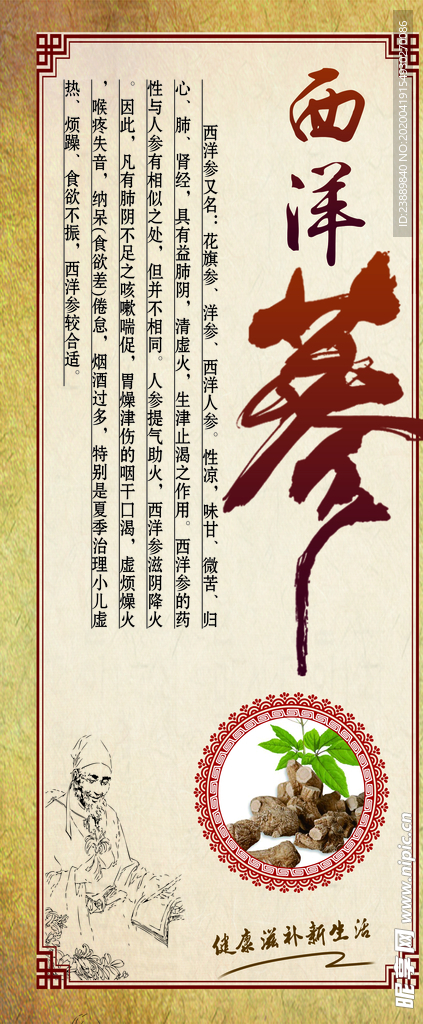 西洋
蔘
西洋参又名：花旗参、洋参、西洋人参。性凉，味甘、微苦、归
心、肺、肾经，具有益肺阴，清虚火，生津止渴之作用。西洋参的药
性与人参有相似之处，但并不相同。人参提气助火，西洋参滋阴降火
。因此，凡有肺阴不足之咳嗽喘促，胃燥津伤的咽干口渴，虚烦燥火
，喉疼失音，纳呆(食欲差)倦怠，烟酒过多，特别是夏季治理小儿虚
热、烦躁、食欲不振，西洋参较合适。
健康滋补新生活
ID:23889840 NO:20200419154930270086
昵享网 www.nipic.cn